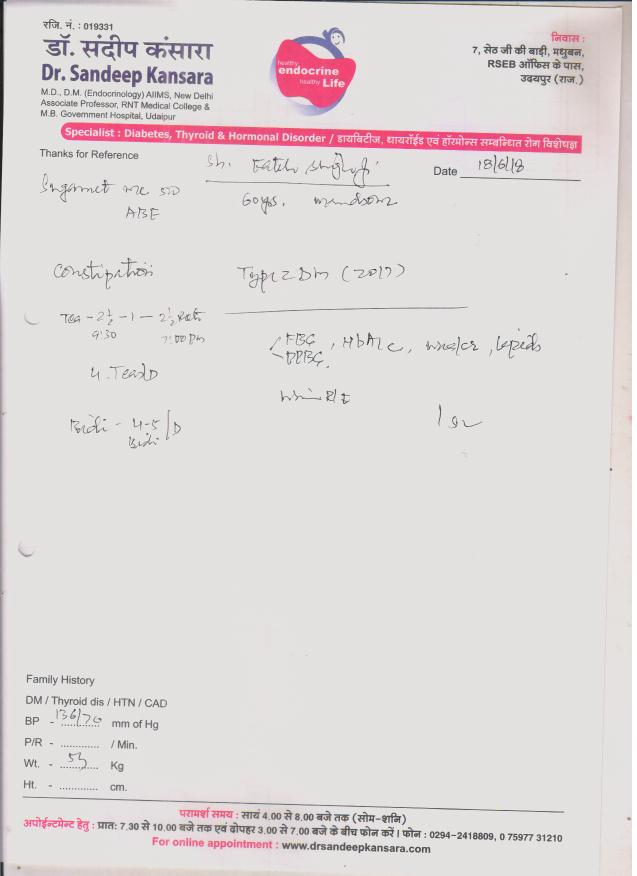 रजि. नं. : 019331
डॉ. संदीप कंसारा
Dr. Sandeep Kansara
M.D., D.M. (Endocrinology) AIIMS, New Delhi
Associate Professor, RNT Medical College &
M.B. Government Hospital, Udaipur
healthy
endocrine
healthy Life
निवास :
7, सेठ जी की बाड़ी, मधुबन,
RSEB ऑफिस के पास,
उदयपुर (राज.)
Specialist : Diabetes, Thyroid & Hormonal Disorder / डायबिटीज, थायरॉईड एवं हॉरमोन्स सम्बन्धित रोग विशेषज्ञ
Thanks for Reference
Sh. Fateh Singhji
Date 18/6/18
60yrs. mandsour
Constipation
Type 2 DM (2017)
Tea - 2½ - 1 - 2½ Roti
9:30 7:00 Pm
4. Teas/D
FBG, HbA1c, urea/cr, lipids
PPBG
Urine R/E
Bidi - 4-5/D
Bidi
Family History
DM / Thyroid dis / HTN / CAD
BP - 136/70 mm of Hg
P/R - ............. / Min.
Wt. - Kg
Ht. - ............. cm.
परामर्श समय : सायं 4.00 से 8.00 बजे तक (सोम-शनि)
अपोईन्टमेन्ट हेतु : प्रात: 7.30 से 10.00 बजे तक एवं दोपहर 3.00 से 7.00 बजे के बीच फोन करें । फोन : 0294-2418809, 0 75977 31210
For online appointment : www.drsandeepkansara.com